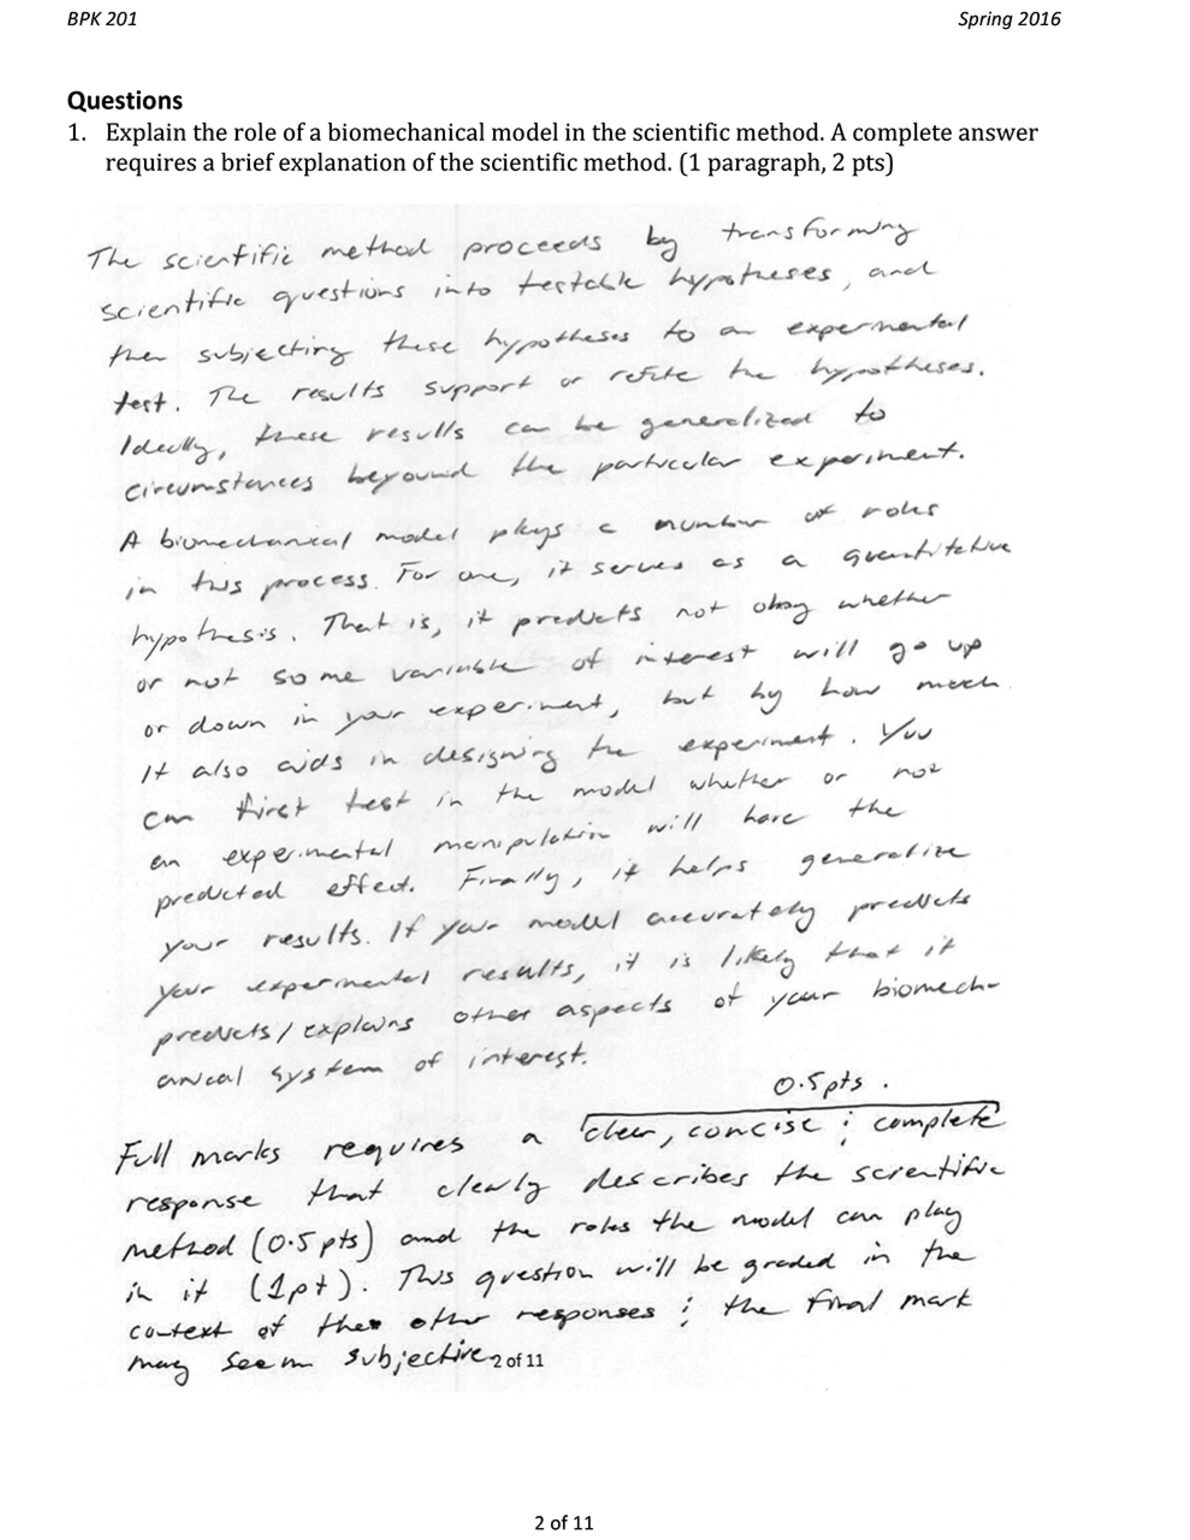 BPK 201
Spring 2016
Questions
1. Explain the role of a biomechanical model in the scientific method. A complete answer
requires a brief explanation of the scientific method. (1 paragraph, 2 pts)
The scientific method proceeds by transforming
scientific questions into testable hypotheses, and
then subjecting these hypotheses to an experimental
test. The results support or refute the hypotheses.
Ideally, these results can be generalized to
circumstances beyound the particular experiment.
A biomechanical model plays a number of roles
in this process. For one, it serves as a quantitative
hypothesis. That is, it predicts not only whether
or not some variable of interest will go up
or down in your experiment, but by how much.
It also aids in designing the experiment. You
can first test in the model whether or not
an experimental manipulation will have the
predicted effect. Finally, it helps generalize
your results. If your model accurately predicts
your experimental results, it is likely that it
predicts/explains other aspects of your biomech-
anical system of interest.
0.5pts.
Full marks requires a clear, concise ; complete
response that clearly describes the scientific
method (0.5pts) and the roles the model can play
in it (1pt). This question will be graded in the
context of the other responses ; the final mark
may seem subjective.
2 of 11
2 of 11